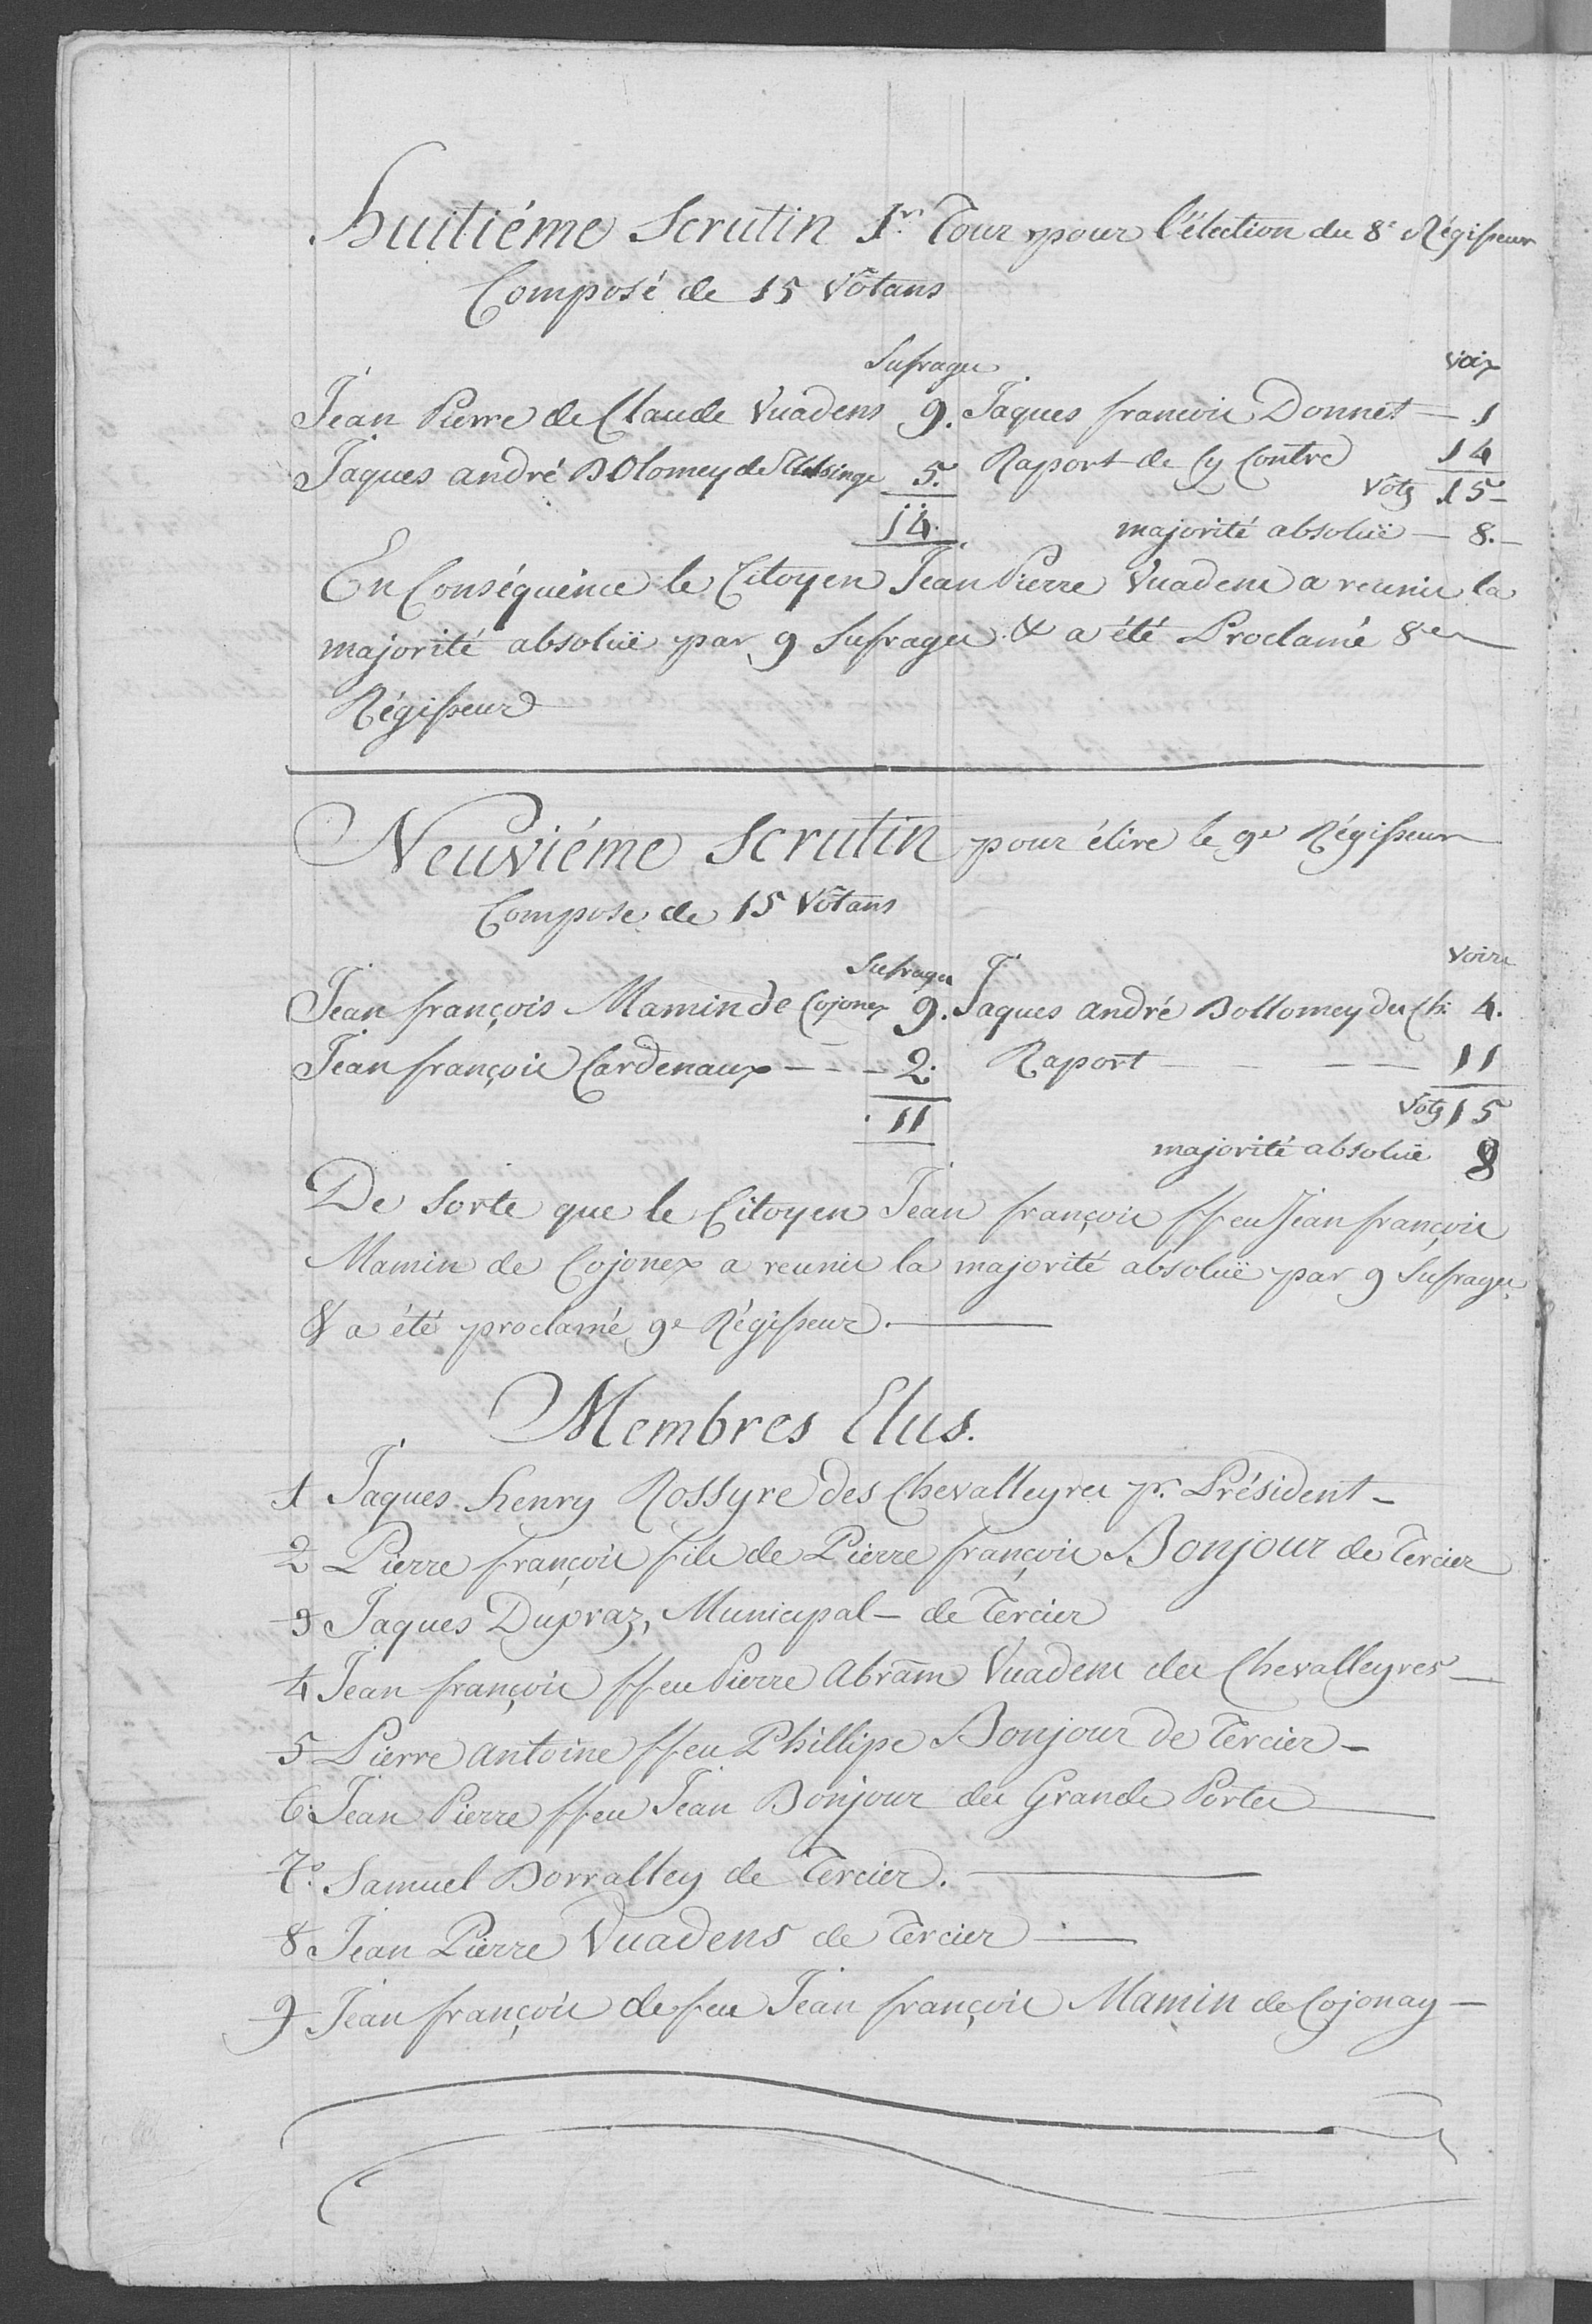 huitiéme Scrutin 1r. Tour pour l'élection du 8e Régisseur
Composé de 15 Votans
Sufrages
Voix
Jean Pierre de Claude Vuadens 9. Jaques francois Donnet — 1
Jaques andré Bolomey de 5. Raport de Cy Contre 14
Votz 15 —
14. majorité absoluë — 8. —
En Conséquence le Citoyen Jean Pierre Vuadens a reunis la
majorité absoluë par 9 Sufrages & a été Proclamé 8e
Régisseur
Neuviéme Scrutin pour élire le 9e Régisseur
Composé de 15 Votans
Sufrages
Voix
Jean françois Mamin de Cojonex 9. Jaques andré Bollomey des Ch: 4.
Jean françois Cardenaux - - - 2. Raport — — — 11
11
Votz 15
majorité absoluë 8
De Sorte que le Citoyen Jean françois ffeu Jean françois
Mamin de Cojonex a reunis la majorité absoluë par 9 Sufrages
& a été proclamé 9e Régisseur. —
Membres Elus.
1 Jaques henry Rossyre des Chevalleyres pr. Président —
2 Pierre françois fils de Pierre françois Bonjour de Tercier
3 Jaques Dupraz, Municipal — de Tercier
4 Jean françois ffeu Pierre Abram Vuadens des Chevalleyres —
5 Pierre antoine ffeu Phillipe Bonjour de Tercier —
6. Jean Pierre ffeu Jean Bonjour des Grands Portes —
7o. Samuel Dorralley de Tercier. —
8 Jean Pierre Vuadens de Tercier —
9 Jean françois de feu Jean françois Mamin de Cojonay —